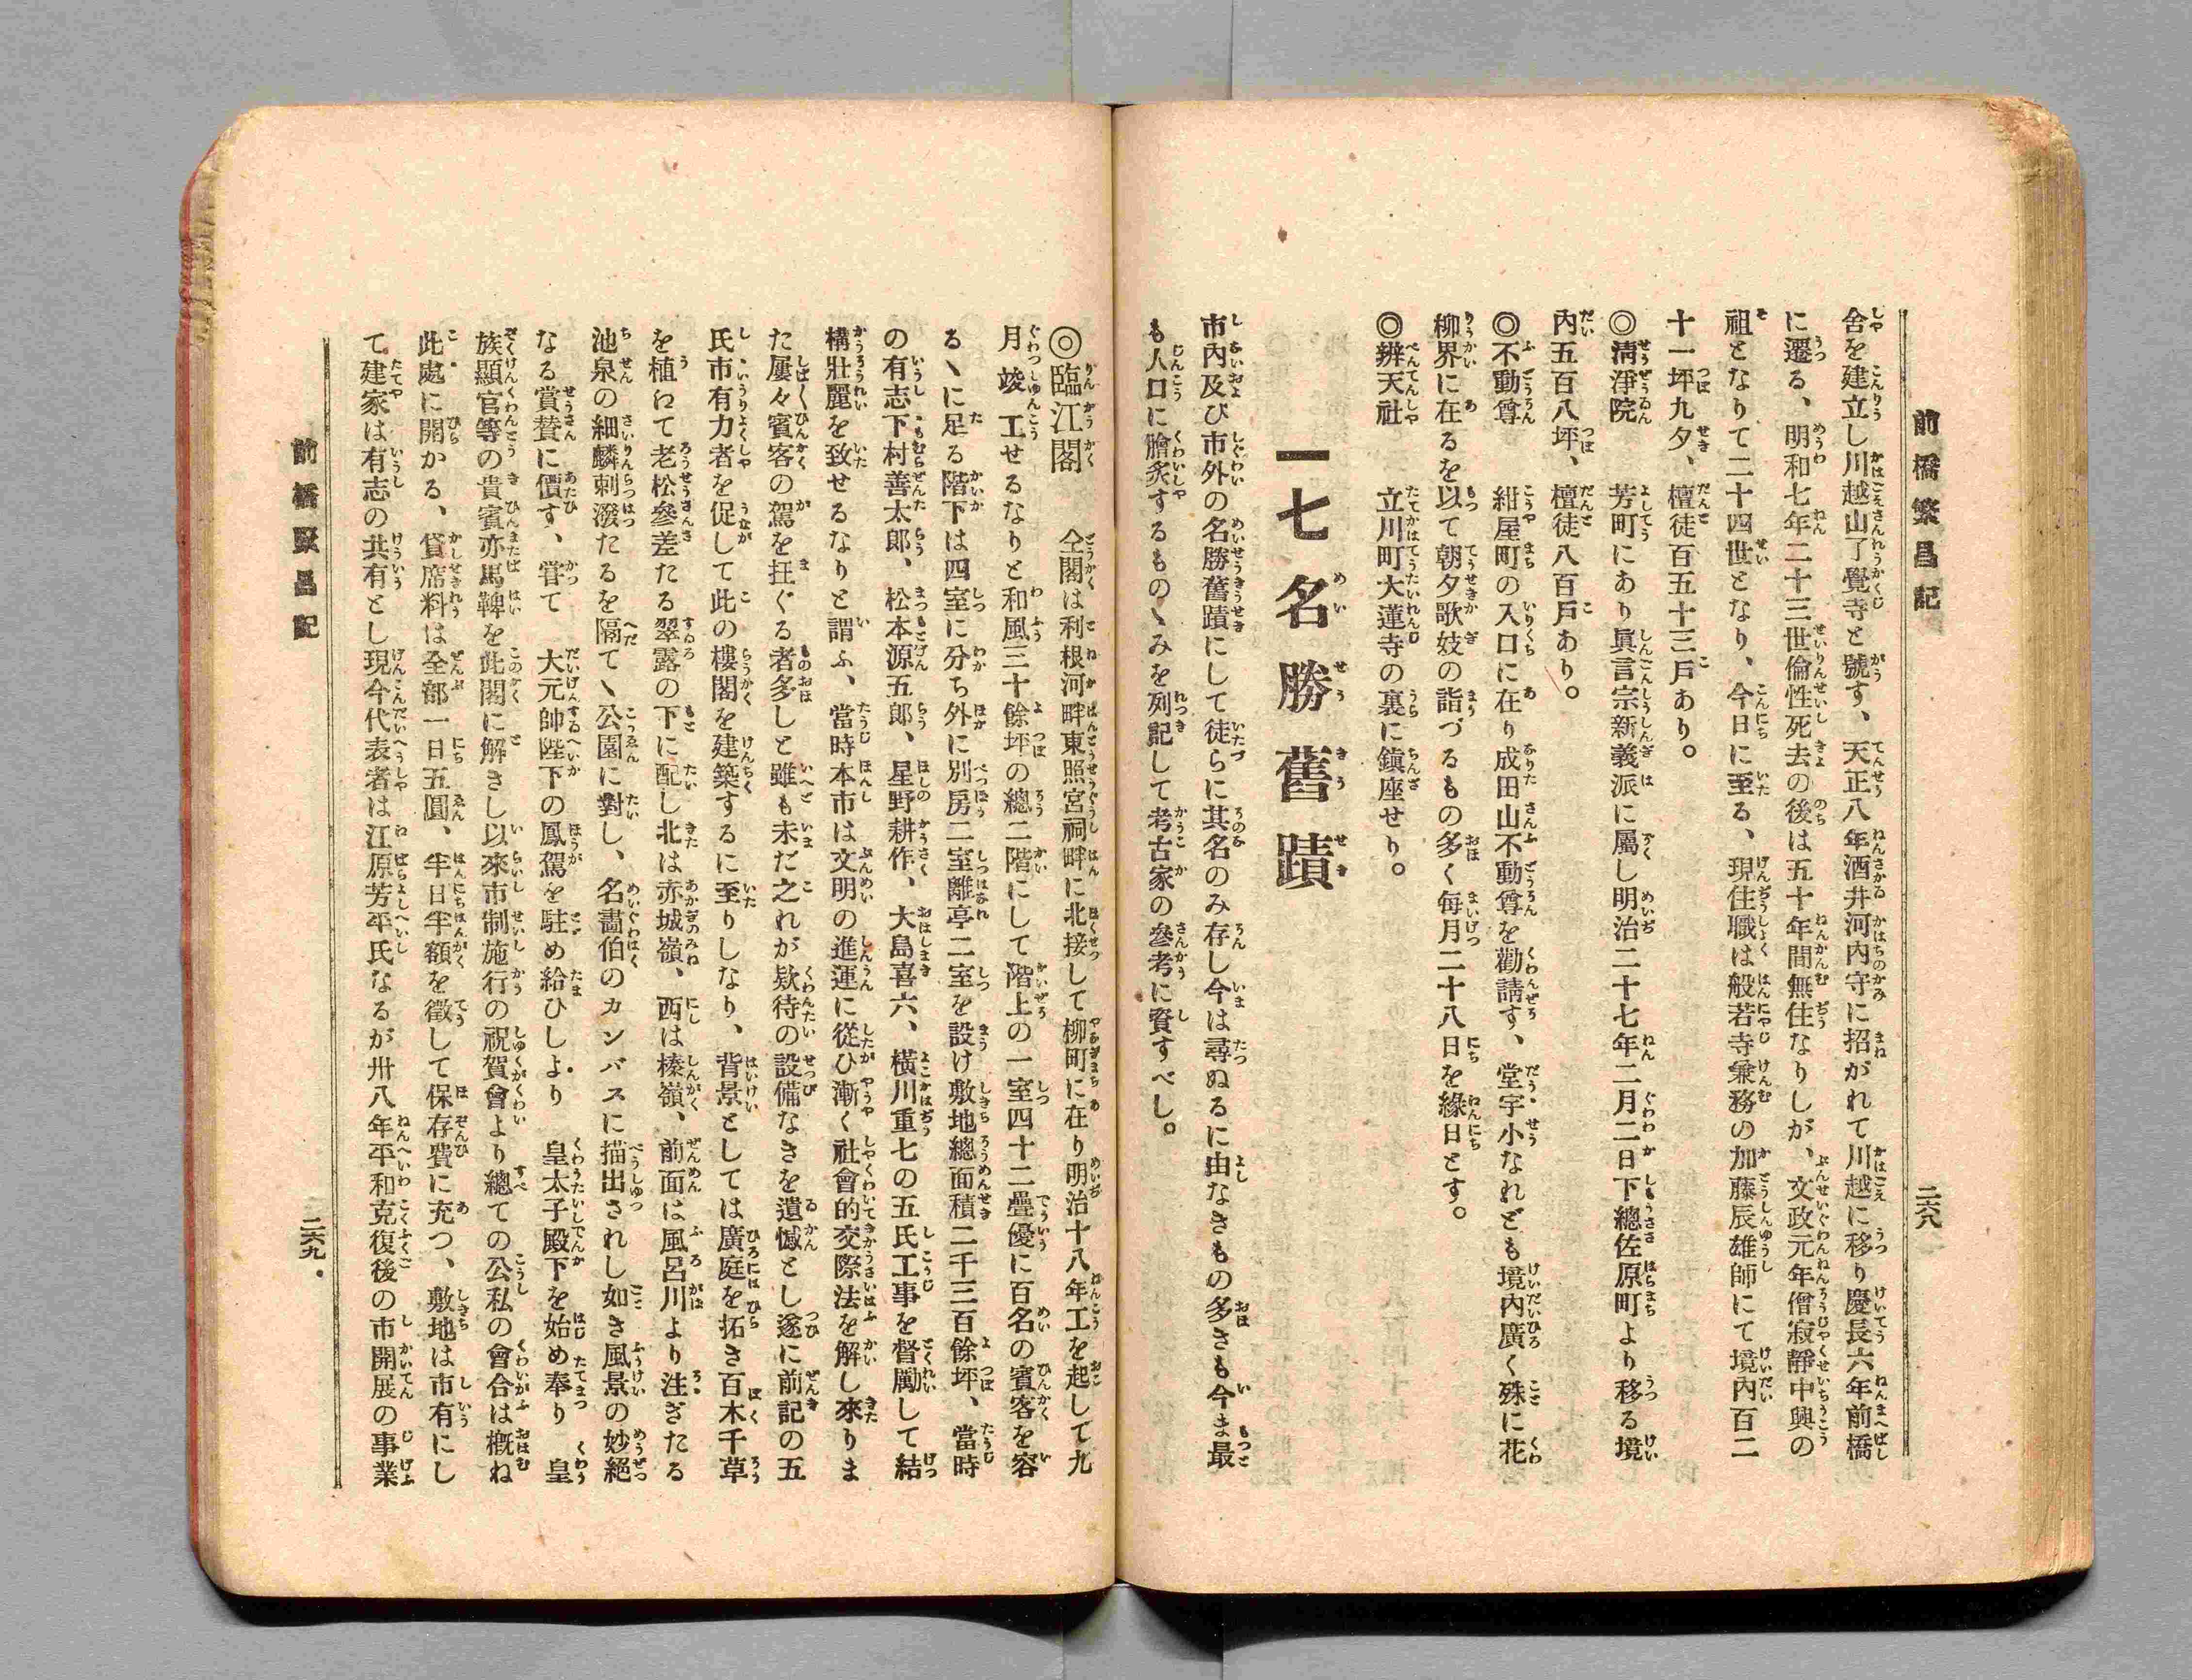 前橋繁昌記
二六八
舍を建立し川越山了覺寺と號す、天正八年酒井河内守に招がれて川越に移り慶長六年前橋
に遷る、明和七年二十三世倫性死去の後は五十年間無住なりしが、文政元年僧寂靜中興の
祖となりて二十四世となり、今日に至る、現住職は般若寺兼務の加藤辰雄師にて境內百二
十一坪九夕、檀徒百五十三戶あり。
◎淸淨院 芳町にあり眞言宗新義派に屬し明治二十七年二月二日下總佐原町より移る境
內五百八坪、檀徒八百戶あり。
◎不動尊 紺屋町の入口に在り成田山不動尊を勸請す、堂宇小なれども境內廣く殊に花
柳界に在るを以て朝夕歌妓の詣づるもの多く每月二十八日を緣日とす。
◎辨天社 立川町大蓮寺の裏に鎭座せり。
一七 名勝舊蹟
市內及び市外の名勝舊蹟にして徒らに其名のみ存し今は尋ぬるに由なきもの多きも今ま最
も人口に膾炙するものヽみを列記して考古家の參考に資すべし。
◎臨江閣 仝閣は利根河畔東照宮祠畔に北接して柳町に在り明治十八年工を起して九
月竣工せるなりと和風三十餘坪の總二階にして階上の一室四十二疊優に百名の賓客を容
るヽに足る階下は四室に分ち外に別房二室離亭二室を設け敷地總面積二千三百餘坪、當時
の有志下村善太郎、松本源五郎、星野耕作、大島喜六、橫川重七の五氏工事を督勵して結
構壯麗を致せるなりと謂ふ、當時本市は文明の進運に從ひ漸く社會的交際法を解し來りま
た屢々賓客の駕を抂ぐる者多しと雖も未だ之れが欵待の設備なきを遺憾とし遂に前記の五
氏市有力者を促して此の樓閣を建築するに至りしなり、背景としては廣庭を拓き百木千草
を植ねて老松參差たる翠露の下に配し北は赤城嶺、西は榛嶺、前面は風呂川より注ぎたる
池泉の細鱗剌潑たるを隔てヽ公園に對し、名畵伯のカンバスに描出されし如き風景の妙絕
なる賞贊に價す、嘗て 大元帥陛下の鳳駕を駐め給ひしより 皇太子殿下を始め奉り 皇
族顯官等の貴賓亦馬鞞を此閣に解きし以來市制施行の祝賀會より總ての公私の會合は槪ね
此處に開かる、貸席料は全部一日五圓、半日半額を徵して保存費に充つ、敷地は市有にし
て建家は有志の共有とし現今代表者は江原芳平氏なるが卅八年平和克復後の市開展の事業
前橋繁昌記
二六九